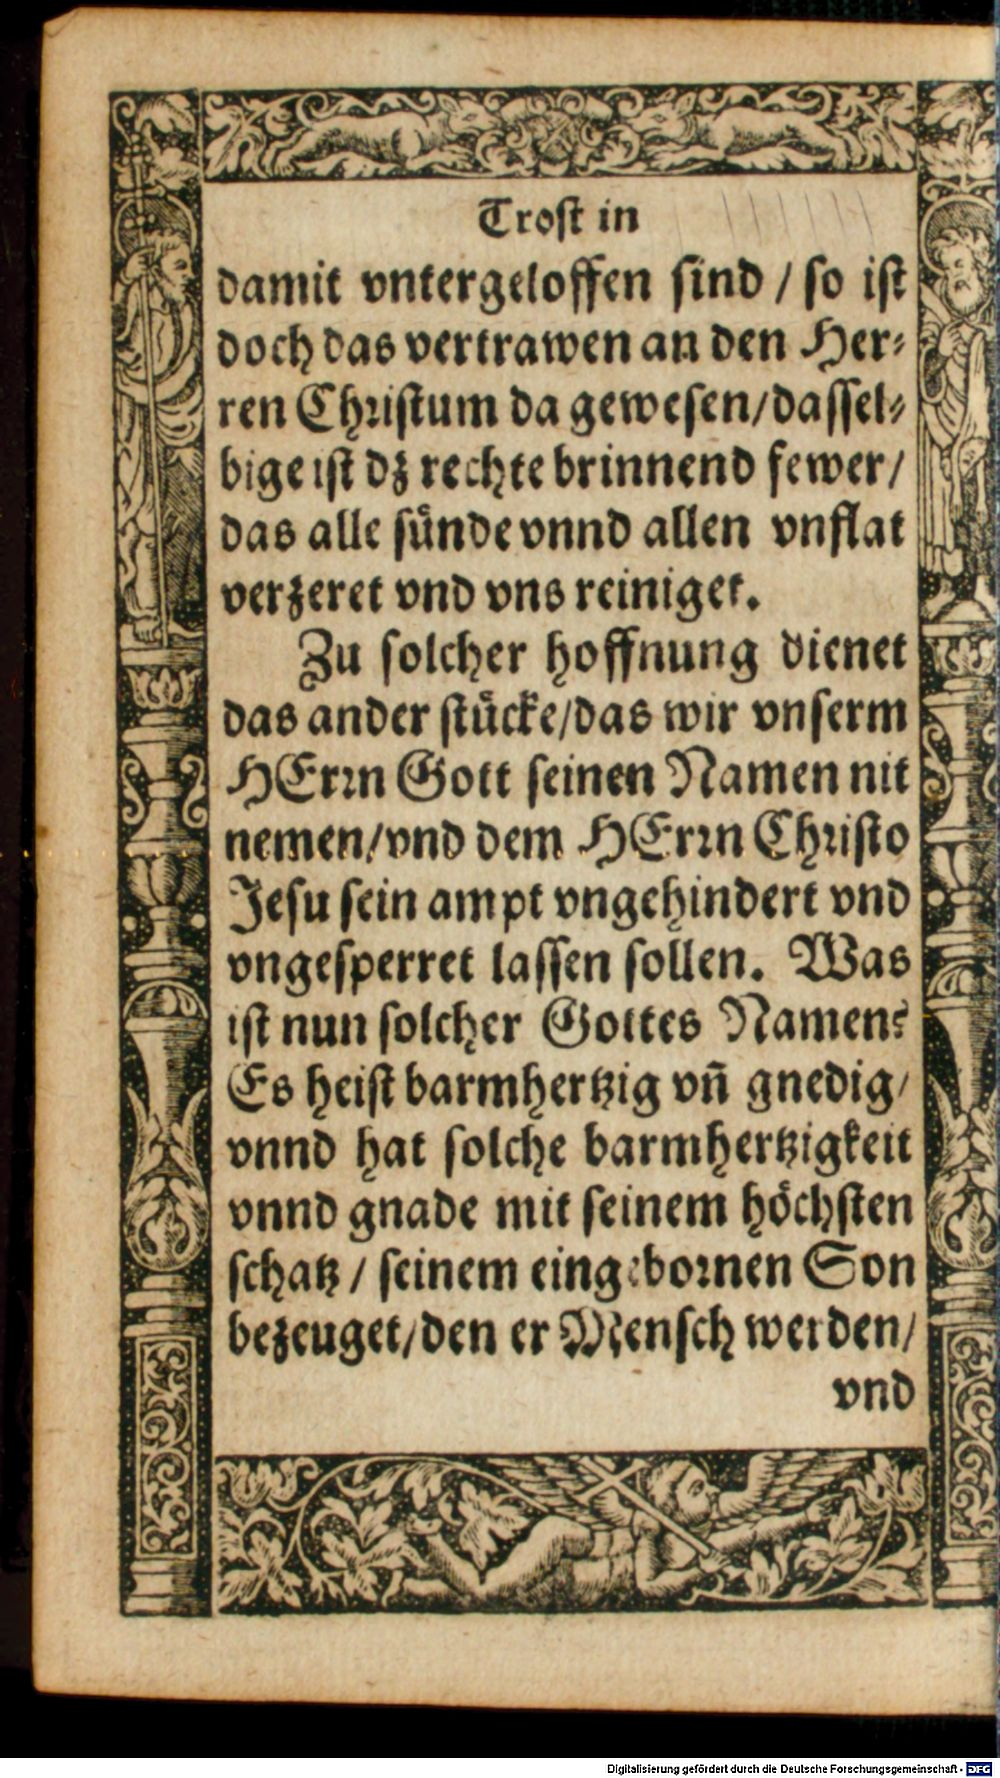 Trost in
damit vntergeloffen sind / so ist
doch das vertrawen an den Her-
ren Christum da gewesen/dassel-
bige ist dz rechte brinnend fewer/
das alle sünde vnnd allen vnflat
verzeret vnd vns reiniget.
Zu solcher hoffnung dienet
das ander stücke/das wir vnserm
HErrn Gott seinen Namen nit
nemen/vnd dem HErrn Christo
Jesu sein ampt vngehindert vnd
vngesperret lassen sollen. Was
ist nun solcher Gottes Namen?
Es heist barmhertzig vñ gnedig/
vnnd hat solche barmhertzigkeit
vnnd gnade mit seinem höchsten
schatz / seinem eingebornen Son
bezeuget/den er Mensch werden/
vnd
Digitalisierung gefördert durch die Deutsche Forschungsgemeinschaft - DFG